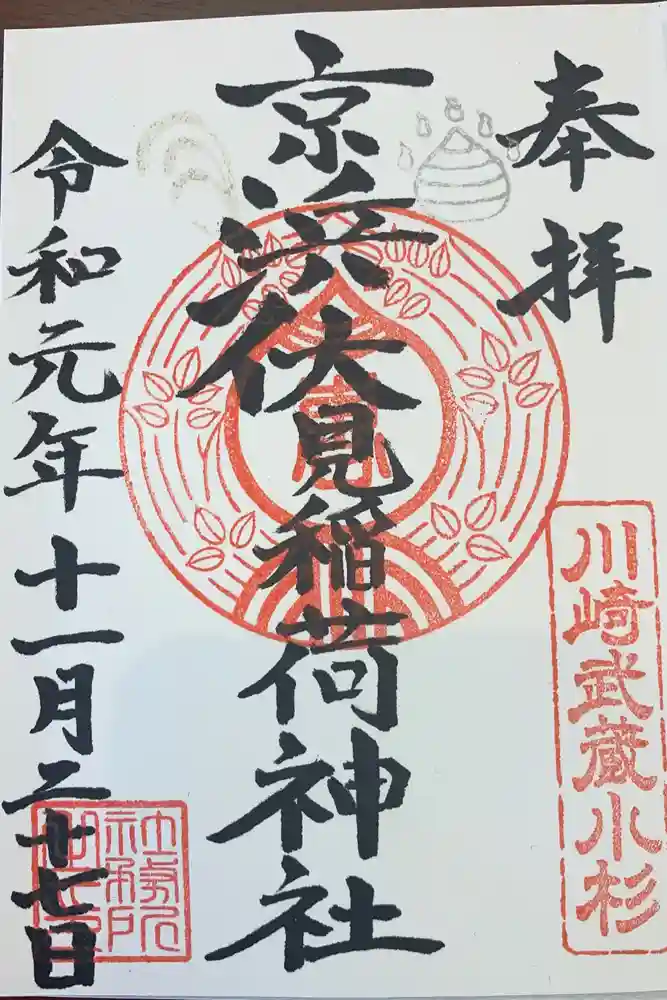 奉拝
川崎武蔵小杉
京浜伏見稲荷神社
令和元年十一月二十七日